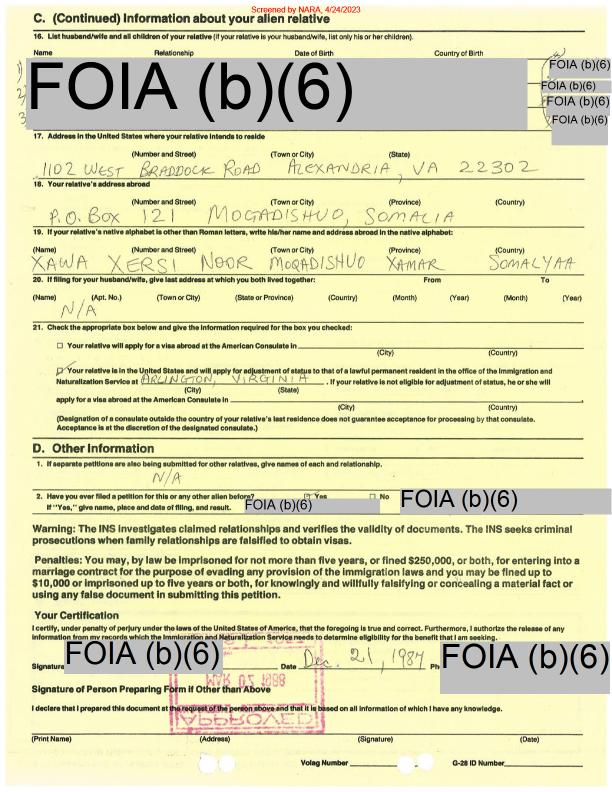 Screened by NARA, 4/24/2023
C. (Continued) Information about your alien relative
16. List husband/wife and all children of your relative (if your relative is your husband/wife, list only his or her children).
Name Relationship Date of Birth Country of Birth
1) FOIA (b)(6) FOIA (b)(6)
2) FOIA (b)(6)
3 FOIA (b)(6)
FOIA (b)(6)
17. Address in the United States where your relative intends to reside
(Number and Street) (Town or City) (State)
1102 WEST BRADDOCK ROAD ALEXANDRIA, VA 22302
18. Your relative's address abroad
(Number and Street) (Town or City) (Province) (Country)
P.O. Box 121 MOGADISHUO, SOMALIA
19. If your relative's native alphabet is other than Roman letters, write his/her name and address abroad in the native alphabet:
(Name) (Number and Street) (Town or City) (Province) (Country)
XAWA XERSI NOOR MOQADISHUO XAMAR SOMALYAA
20. If filing for your husband/wife, give last address at which you both lived together: From To
(Name) (Apt. No.) (Town or City) (State or Province) (Country) (Month) (Year) (Month) (Year)
N/A
21. Check the appropriate box below and give the information required for the box you checked:
Your relative will apply for a visa abroad at the American Consulate in
(City) (Country)
Your relative is in the United States and will apply for adjustment of status to that of a lawful permanent resident in the office of the Immigration and
Naturalization Service at ARLINGTON, VIRGINIA . If your relative is not eligible for adjustment of status, he or she will
(City) (State)
apply for a visa abroad at the American Consulate in
(City) (Country)
(Designation of a consulate outside the country of your relative's last residence does not guarantee acceptance for processing by that consulate.
Acceptance is at the discretion of the designated consulate.)
D. Other Information
1. If separate petitions are also being submitted for other relatives, give names of each and relationship.
N/A
2. Have you ever filed a petition for this or any other alien before? Yes No FOIA (b)(6)
If "Yes," give name, place and date of filing, and result. FOIA (b)(6)
Warning: The INS investigates claimed relationships and verifies the validity of documents. The INS seeks criminal
prosecutions when family relationships are falsified to obtain visas.
Penalties: You may, by law be imprisoned for not more than five years, or fined $250,000, or both, for entering into a
marriage contract for the purpose of evading any provision of the immigration laws and you may be fined up to
$10,000 or imprisoned up to five years or both, for knowingly and willfully falsifying or concealing a material fact or
using any false document in submitting this petition.
Your Certification
I certify, under penalty of perjury under the laws of the United States of America, that the foregoing is true and correct. Furthermore, I authorize the release of any
information from my records which the Immigration and Naturalization Service needs to determine eligibility for the benefit that I am seeking.
Signature FOIA (b)(6) Date Dec. 21, 1987 Ph FOIA (b)(6)
MAR 02 1988
Signature of Person Preparing Form if Other than Above
I declare that I prepared this document at the request of the person above and that it is based on all information of which I have any knowledge.
APPROVED
(Print Name) (Address) (Signature) (Date)
Volag Number G-28 ID Number